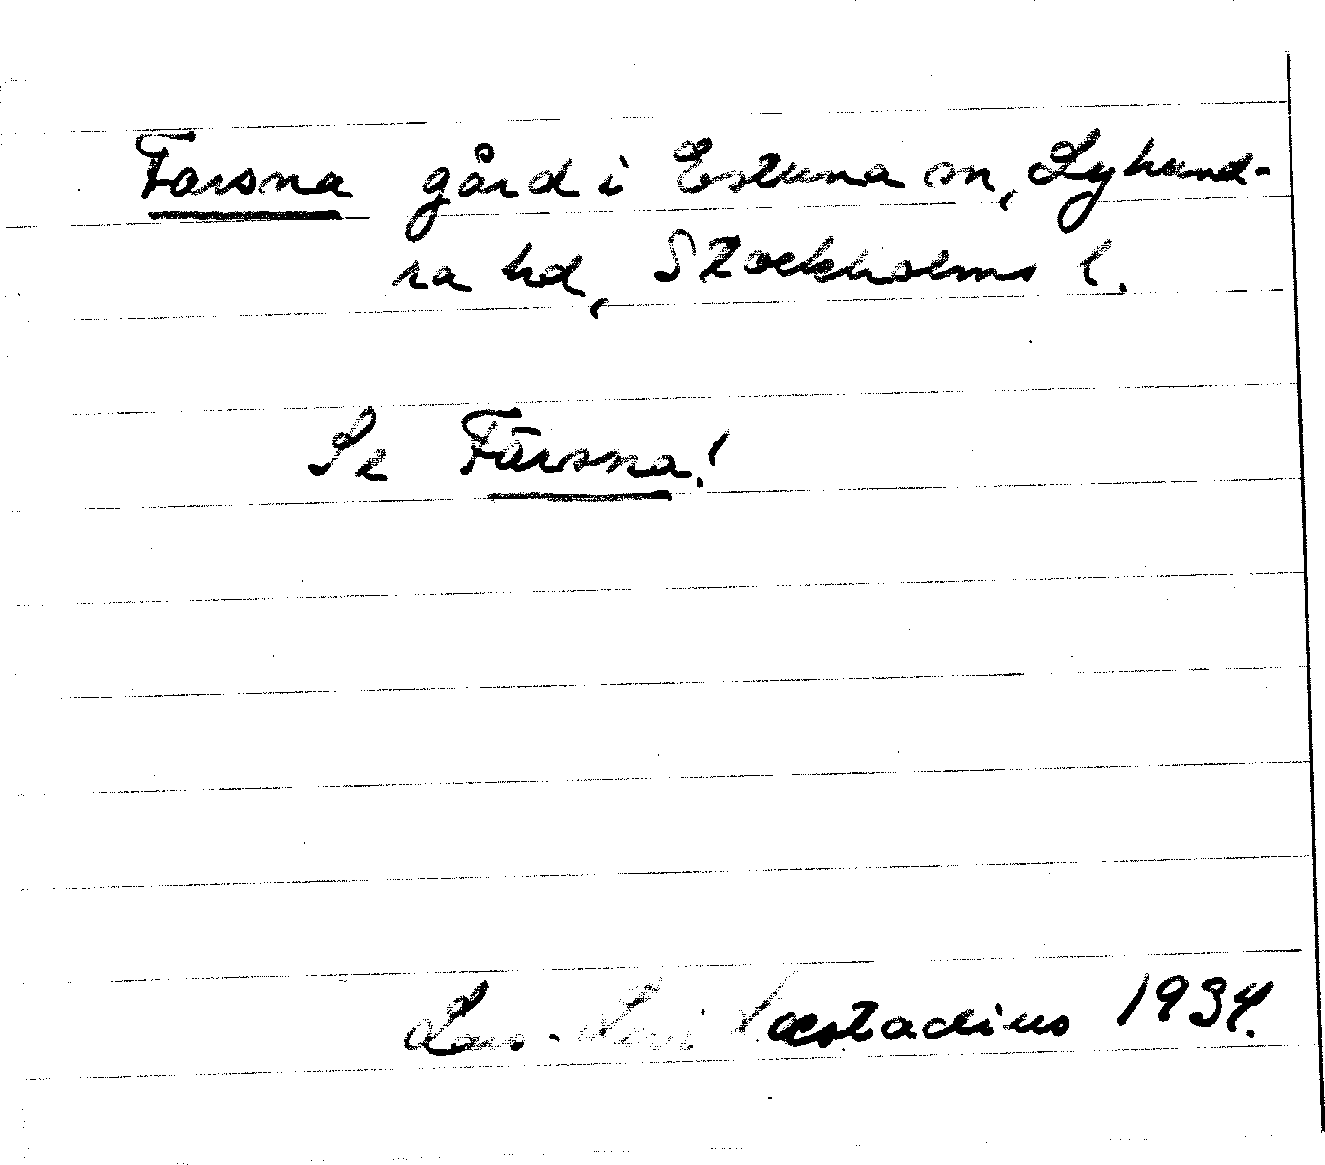 Farsna gård i Estuna sn, Lyhund-
ra hd, Stockholms l.
Se Färsna!
Lars-Levi Læstadius 1934.